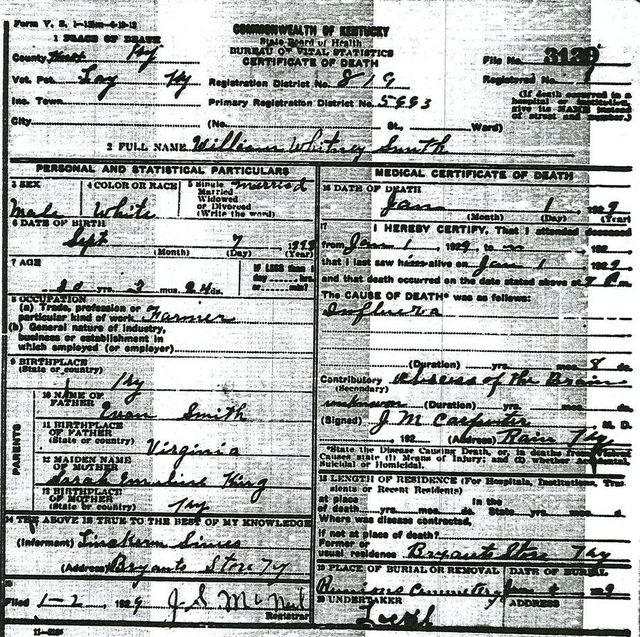 Form V. S. 1-
COMMONWEALTH OF KENTUCKY
State Board of Health
BUREAU OF VITAL STATISTICS
CERTIFICATE OF DEATH
1 PLACE OF DEATH
County Ky
Vot. Pct. Ky
Inc. Town
City
Registration District No. 819
Primary Registration District No.
(No. St., Ward)
File No.
Registered No.
(If death occurred in a hospital or institution, give its NAME instead of street and number.)
2 FULL NAME William Whitney Smith
PERSONAL AND STATISTICAL PARTICULARS
3 SEX
Male
4 COLOR OR RACE
White
5 Single
Married
Widowed
or Divorced
(Write the word)
married
6 DATE OF BIRTH
Sept 7
(Month) (Day) (Year)
7 AGE
yrs. mos. ds.
IF LESS than 1
day hrs.
or min?
8 OCCUPATION
(a) Trade, profession or
particular kind of work Farmer
(b) General nature of Industry,
business or establishment in
which employed (or employer)
9 BIRTHPLACE
(State or country)
Ky
PARENTS
10 NAME OF
FATHER
Evan Smith
11 BIRTHPLACE
OF FATHER
(State or country)
Virginia
12 MAIDEN NAME
OF MOTHER
Sarah Emaline King
13 BIRTHPLACE
OF MOTHER
(State or country)
Ky
14 THE ABOVE IS TRUE TO THE BEST OF MY KNOWLEDGE
(Informant)
(Address) Bryants Store Ky
15
Filed 1-2 1929 J. S. McNeil
Registrar
MEDICAL CERTIFICATE OF DEATH
16 DATE OF DEATH
Jan 1 1929
(Month) (Day) (Year)
17
I HEREBY CERTIFY, That I attended deceased
from Jan 1 1929 to 192
that I last saw alive on Jan 1 1929
and that death occurred on the date stated above at m.
The CAUSE OF DEATH* was as follows:
(Duration) yrs. mos. 8 ds.
Contributory Abscess of the Brain
(Secondary)
unknown (Duration) yrs. mos. ds.
(Signed) J M Carpenter M. D.
192 (Address) Rain Ky
*State the Disease Causing Death, or, in deaths from
Causes state (1) Means of Injury; and (2) whether
Suicidal or Homicidal.
18 LENGTH OF RESIDENCE (For Hospitals, Institutions,
sients or Recent Residents)
At place In the
of death yrs. mos. ds. State yrs. mos. ds.
Where was disease contracted,
if not at place of death?
Former or
usual residence Bryants Store Ky
19 PLACE OF BURIAL OR REMOVAL
DATE OF BURIAL
Cemetery Jan
20 UNDERTAKER
ADDRESS